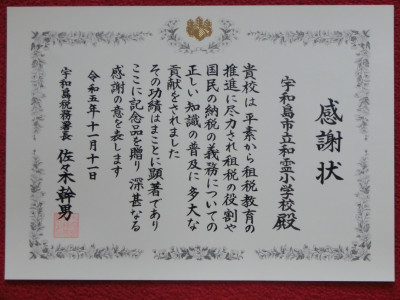 感謝状
宇和島市立和霊小学校殿
貴校は平素から租税教育の
推進に尽力され租税の役割や
国民の納税の義務についての
正しい知識の普及に多大な
貢献をされました
その功績はまことに顕著であり
ここに記念品を贈り深甚なる
感謝の意を表します
令和五年十一月十一日
宇和島税務署長 佐々木幹男